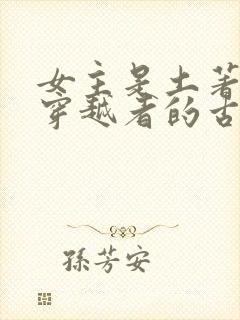 女主是土著
穿越者的古
孫芳安